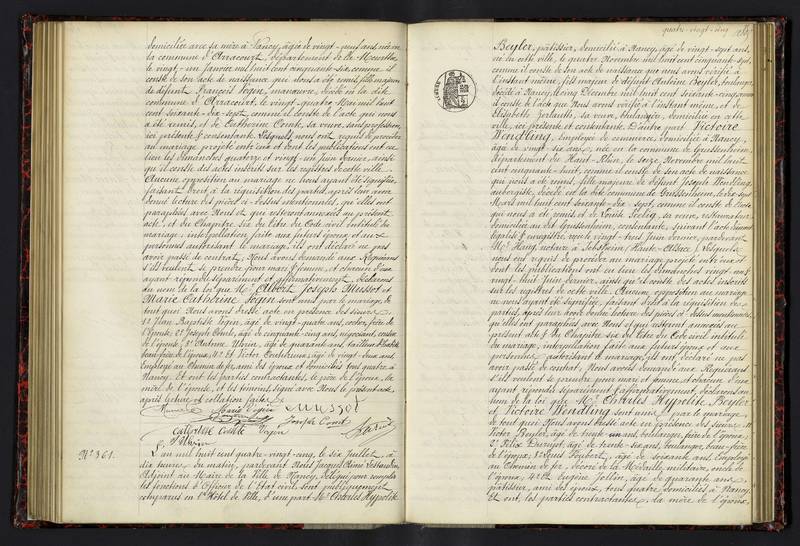 domiciliée avec sa mère à Nancy, âgée de vingt-neuf ans, née en
la commune d'Arracourt, département de la Meurthe,
le vingt-un Janvier mil huit cent cinquante-six, comme il
conste de son acte de naissance qui nous a été remis, fille majeure
de défunt François Vogin, manœuvre, décédé en la dite
commune d'Arracourt, le vingt-quatre Mai mil huit
cent soixante-dix-sept, comme il conste de l'acte qui nous
a été remis, et de Catherine Comte, sa veuve, sans profession
ici présente & consentante. Lesquels nous ont requis de procéder
au mariage projeté entre eux et dont les publications ont eu
lieu les dimanches quatorze et vingt-un Juin dernier, ainsi
qu'il conste des actes inscrits sur les registres de cette ville.
Aucune opposition au mariage ne nous ayant été signifiée,
faisant droit à la réquisition des parties, après leur avoir
donné lecture des pièces ci-dessus mentionnées, qu'elles ont
paraphées avec Nous et qui resteront annexées au présent
acte, et du Chapitre Six du titre du Code civil intitulé du
mariage, interpellation faite aux futurs époux et aux
personnes autorisant le mariage, ils ont déclaré ne pas
avoir passé de contrat. Nous avons demandé aux Requérants
s'ils veulent se prendre pour mari & femme, et chacun d'eux
ayant répondu séparément et affirmativement, déclarons
au nom de la loi que Mr Albert Joseph Mussot et
Marie Catherine Vogin sont unis par le mariage, de
tout quoi Nous avons dressé acte en présence des sieurs
1º Jean Baptiste Vogin, âgé de vingt-quatre ans, cocher, frère de
l'épouse, 2º Joseph Comte, âgé de cinquante-cinq ans, négociant, cousin
de l'épouse, 3º Antoine Ubrin, âgé de quarante ans, tailleur d'habits
beau-frère de l'époux, & 4º Victor Couturieux, âgé de vingt-deux ans,
Employé au Chemin de fer, ami des époux et domiciliés tous quatre à
Nancy. Et ont les parties contractantes, la mère de l'époux, la
mère de l'épouse, et les témoins signé avec Nous le présent acte,
après lecture et collation faites.
Marie Vogin Mussot
Catherine Vogin Joseph Comte
Ubrin
Nº 361. L'an mil huit cent quatre-vingt-cinq, le six Juillet, à
dix heures du matin, pardevant Nous Jacques
Adjoint au Maire de la Ville de Nancy, délégué pour remplir
les fonctions d'Officier de l'Etat civil, sont publiquement
comparus en l'Hôtel de Ville, d'une part Mr Charles Hyppolite
quatre-vingt-cinq
Beyler, pâtissier, domicilié à Nancy, âgé de vingt-sept ans,
né en cette ville, le quatre Novembre mil huit cent cinquante-sept,
comme il conste de son acte de naissance que nous avons vérifié à
l'instant même, fils majeur de défunt Antoine Beyler, boulanger,
décédé à Nancy, le cinq Décembre mil huit cent soixante-cinq, comme
il conste de l'acte que Nous avons vérifié à l'instant même, et de
Elisabeth, sa veuve, boulangère, domiciliée en cette
ville, ici présente et consentante. D'autre part Victoire
Wendling, Employée de commerce, domiciliée à Nancy,
âgée de vingt-six ans, née en la commune de Grussenheim,
département du Haut-Rhin, le seize Novembre mil huit
cent cinquante-huit, comme il conste de son acte de naissance
qui nous a été remis, fille majeure de défunt Joseph Wendling,
aubergiste, décédé en la dite commune de Grussenheim, le dix-sept
Mars mil huit cent soixante-dix-sept, comme il conste de l'acte
qui nous a été remis et de Louise, sa veuve, restaurateur
domiciliée au dit Grussenheim, consentante, suivant l'acte dûment
légalisé & enregistré reçu le vingt-trois Juin dernier, pardevant
Me Hang, notaire à Jebsheim (Haute-Alsace). Lesquels
nous ont requis de procéder au mariage projeté entre eux et
dont les publications ont eu lieu les dimanches vingt-un &
vingt-huit Juin dernier, ainsi qu'il conste des actes inscrits
sur les registres de cette ville. Aucune opposition au mariage
ne nous ayant été signifiée, faisant droit à la réquisition des
parties, après leur avoir donné lecture des pièces ci-dessus mentionnées,
qu'elles ont paraphées avec Nous et qui resteront annexées au
présent acte, & du Chapitre Six du titre du Code civil intitulé
du mariage, interpellation faite aux futurs époux et aux
personnes autorisant le mariage, ils ont déclaré ne pas
avoir passé de contrat. Nous avons demandé aux Requérants
s'ils veulent se prendre pour mari & femme, et chacun d'eux
ayant répondu séparément & affirmativement, déclarons au
nom de la loi que Mr Charles Hypolite Beyler
et Victoire Wendling sont unis par le mariage,
de tout quoi Nous avons dressé acte en présence des sieurs 1º
Victor Beyler, âgé de trente-un ans, boulanger, frère de l'époux,
2º Félix, âgé de trente-six ans, boulanger, beau-frère
de l'époux, 3º Louis Joubert, âgé de soixante ans, Employé
au Chemin de fer, décoré de la Médaille militaire, oncle de
l'époux, 4º Et Eugène, âgé de quarante ans,
pâtissier, ami des époux, tous quatre domiciliés à Nancy.
Et ont, les parties contractantes, la mère de l'époux,